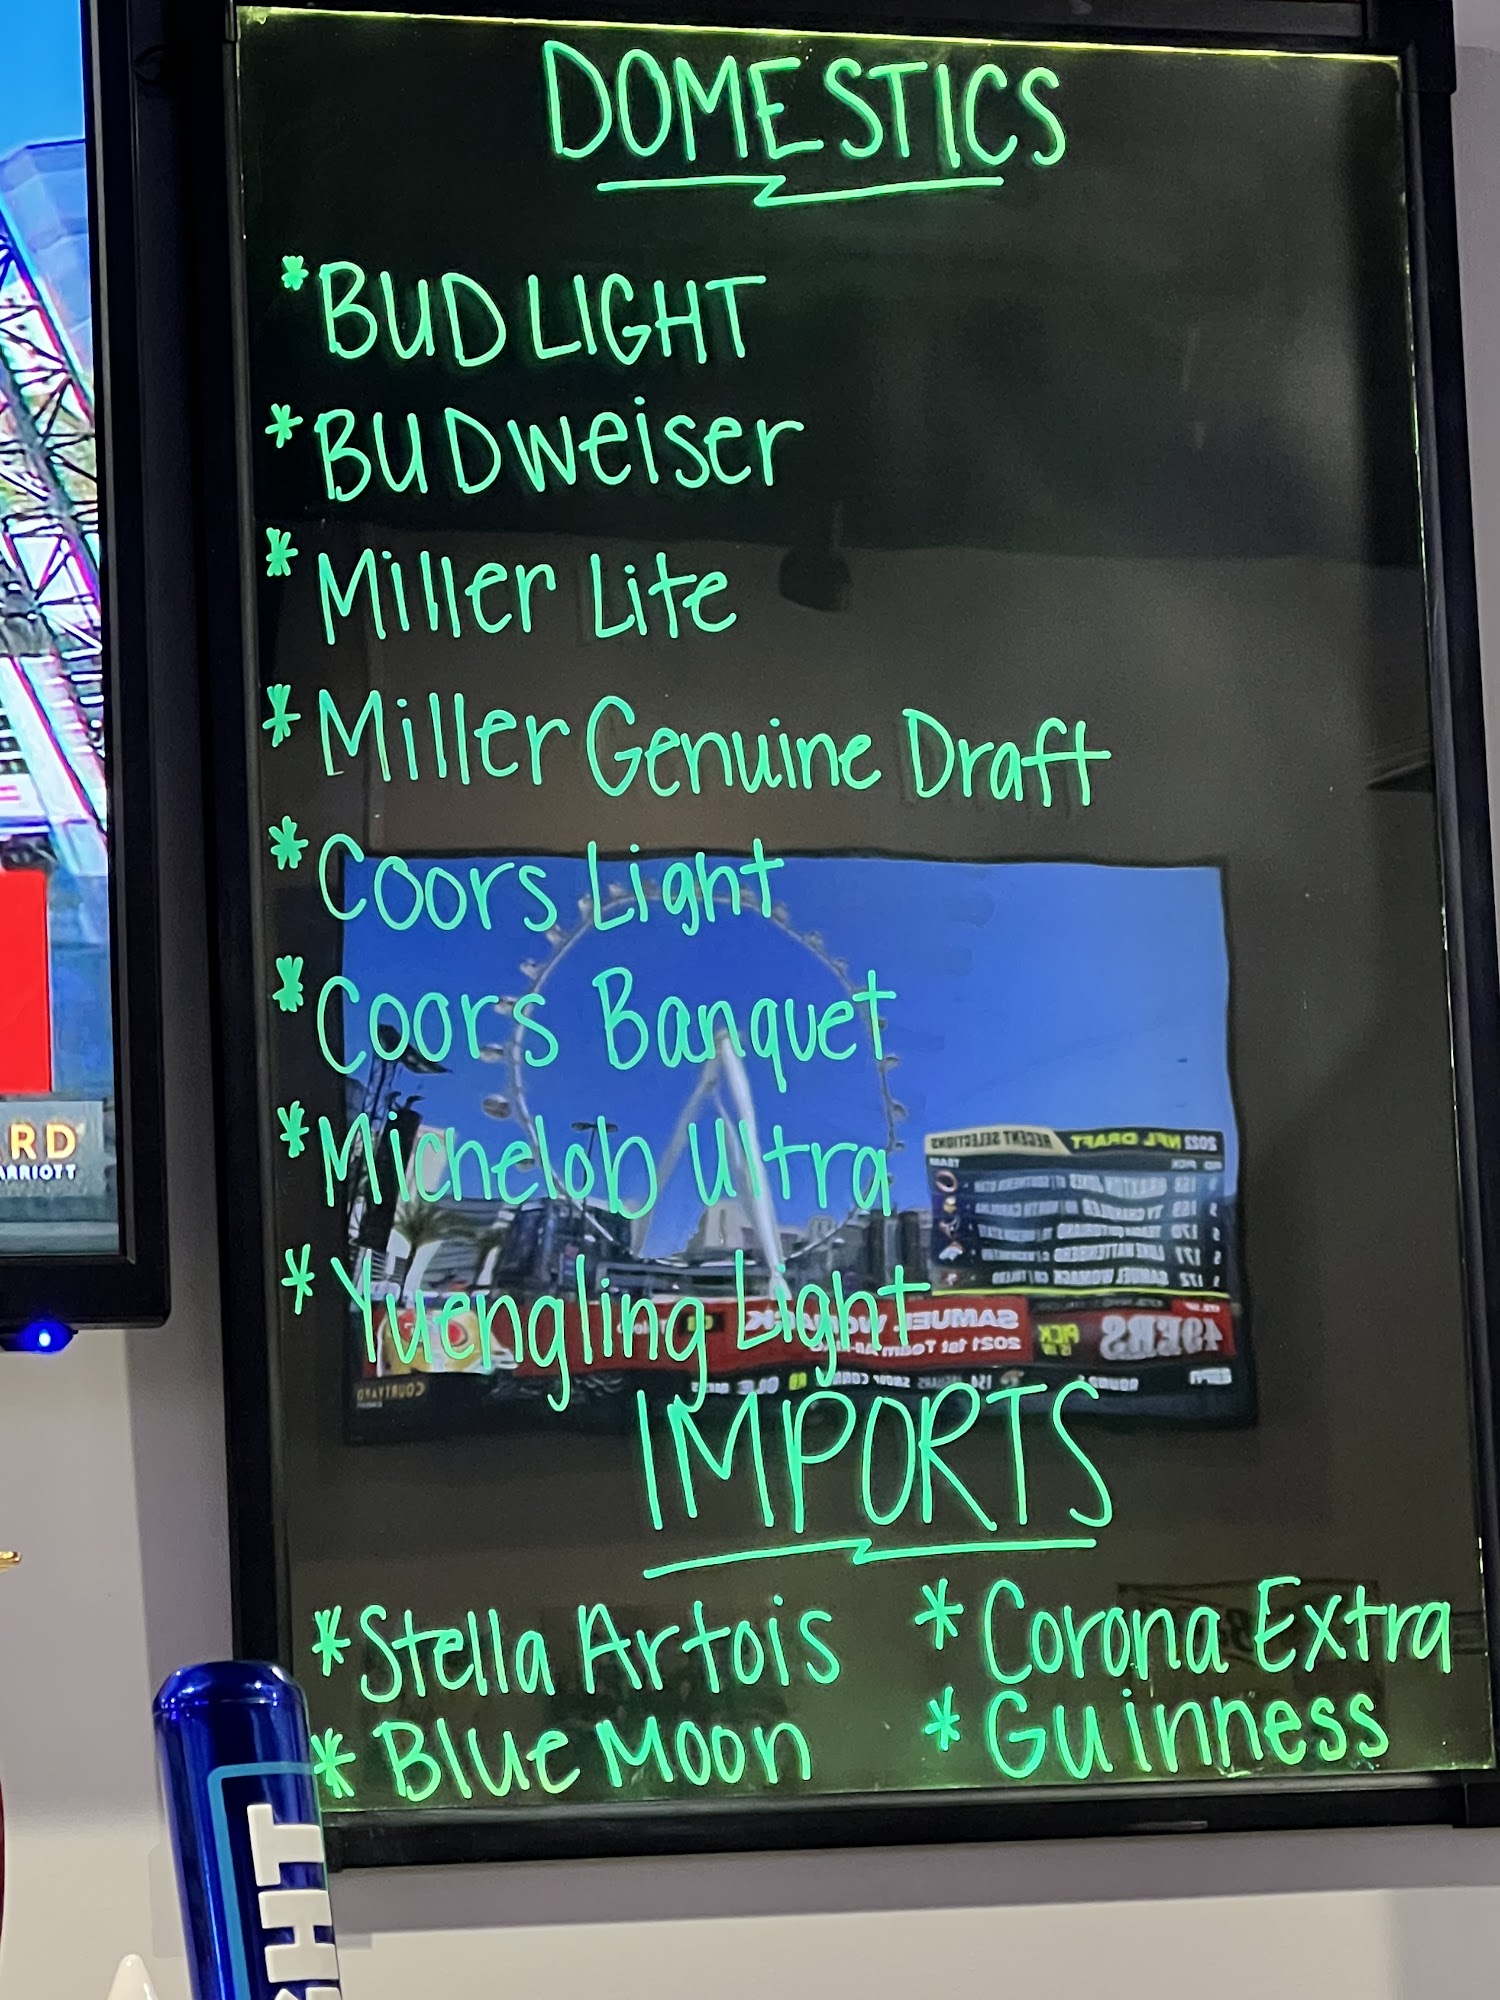 DOMESTICS
*BUD LIGHT
*BUDweiser
*Miller Lite
*Miller Genuine Draft
*Coors Light
*Coors Banquet
*Michelob Ultra
*Yuengling Light
IMPORTS
*Stella Artois *Corona Extra
*Blue Moon *Guinness
RD
ARRIOTT
2022 NFL DRAFT RECENT SELECTIONS
49ERS PICK IS IN
2021 1st Team
ESPN
COURTYARD